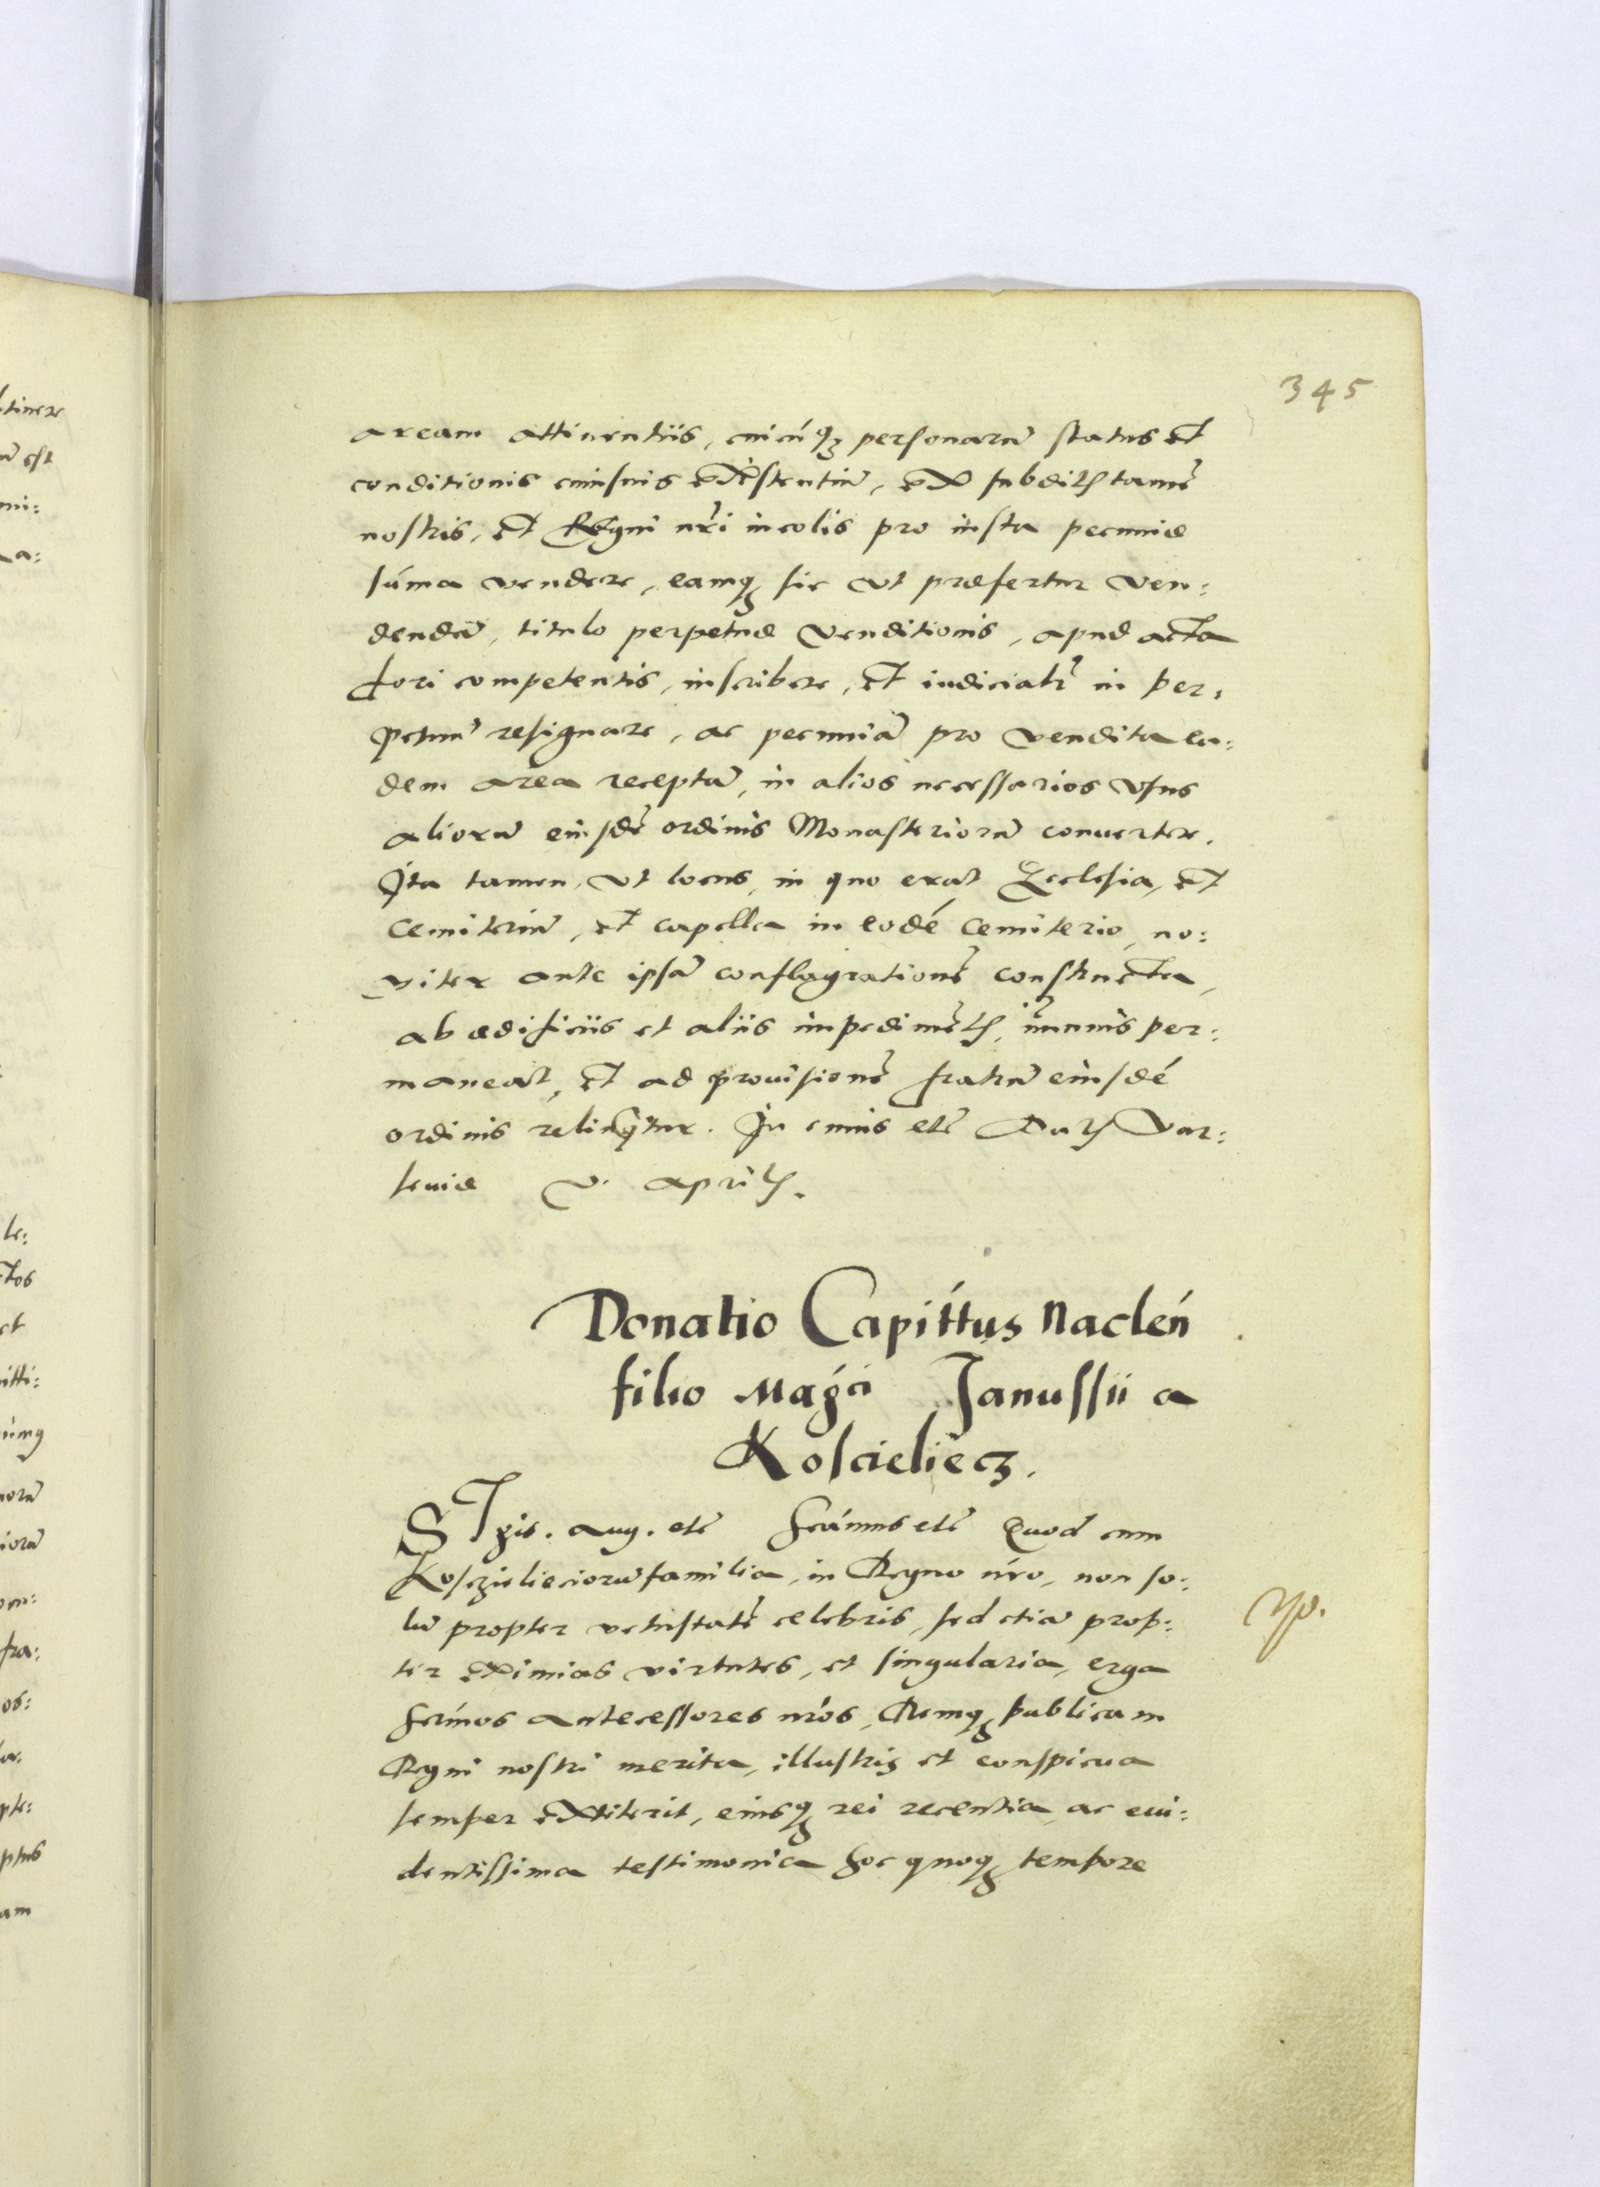 345
aream attinentiis, cuicúq3 personarũ status et
conditionis cuiusuis existentiũ, ex subditis tamẽ
nostris, et Regni nr̃i incolis pro iusta pecuniæ
súma vendere, eamq3 sic ut præfertur ven:
dendã, titulo perpetuæ venditionis, apud acta
fori competentis, inscribere, et iudicialr̃ in per:
petuũ resignare, ac pecuniã pro vendita ea:
dem area receptã, in alios necessarios usus
aliorũ eiusdẽ ordinis Monasteriorũ conuertere.
Ita tamen, ut locus, in quo erat Ecclesia, et
Cemiteriũ, et capella in eodé Cemiterio, no:
viter ante ipsã conflagrationẽ constructa,
ab ædificiis et aliis impedimẽtis, im̃unis per:
maneat, et ad prouisionẽ fratrũ eiusdé
ordinis relinqtur. In cuius etc̃ Datis Var:
seuiæ v. Aprilis.
Donatio Capittus Naclén
filio Magci Janussii a
Koscieliecz.
Sigis. Aug. etc̃ ficámus etc̃ Quod cum
Kosczielieciorũ familia, in Regno nró, non so:
lũ propter vetustatẽ celebris, sed etiã prop:
ter eximias virtutes, et singularia, erga
Serńos antecessores nrós, Remq3 publicam
Regni nostri merita, illustris et conspicua
semper extiterit, eiusq3 rei recentia, ac eui:
dentissima testimonia hoc quoq3 tempore